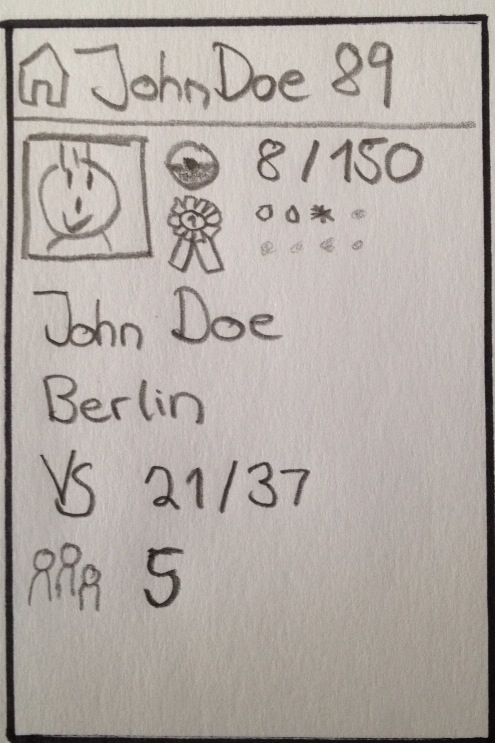 John Doe 89
8/150
John Doe
Berlin
VS 21/37
5